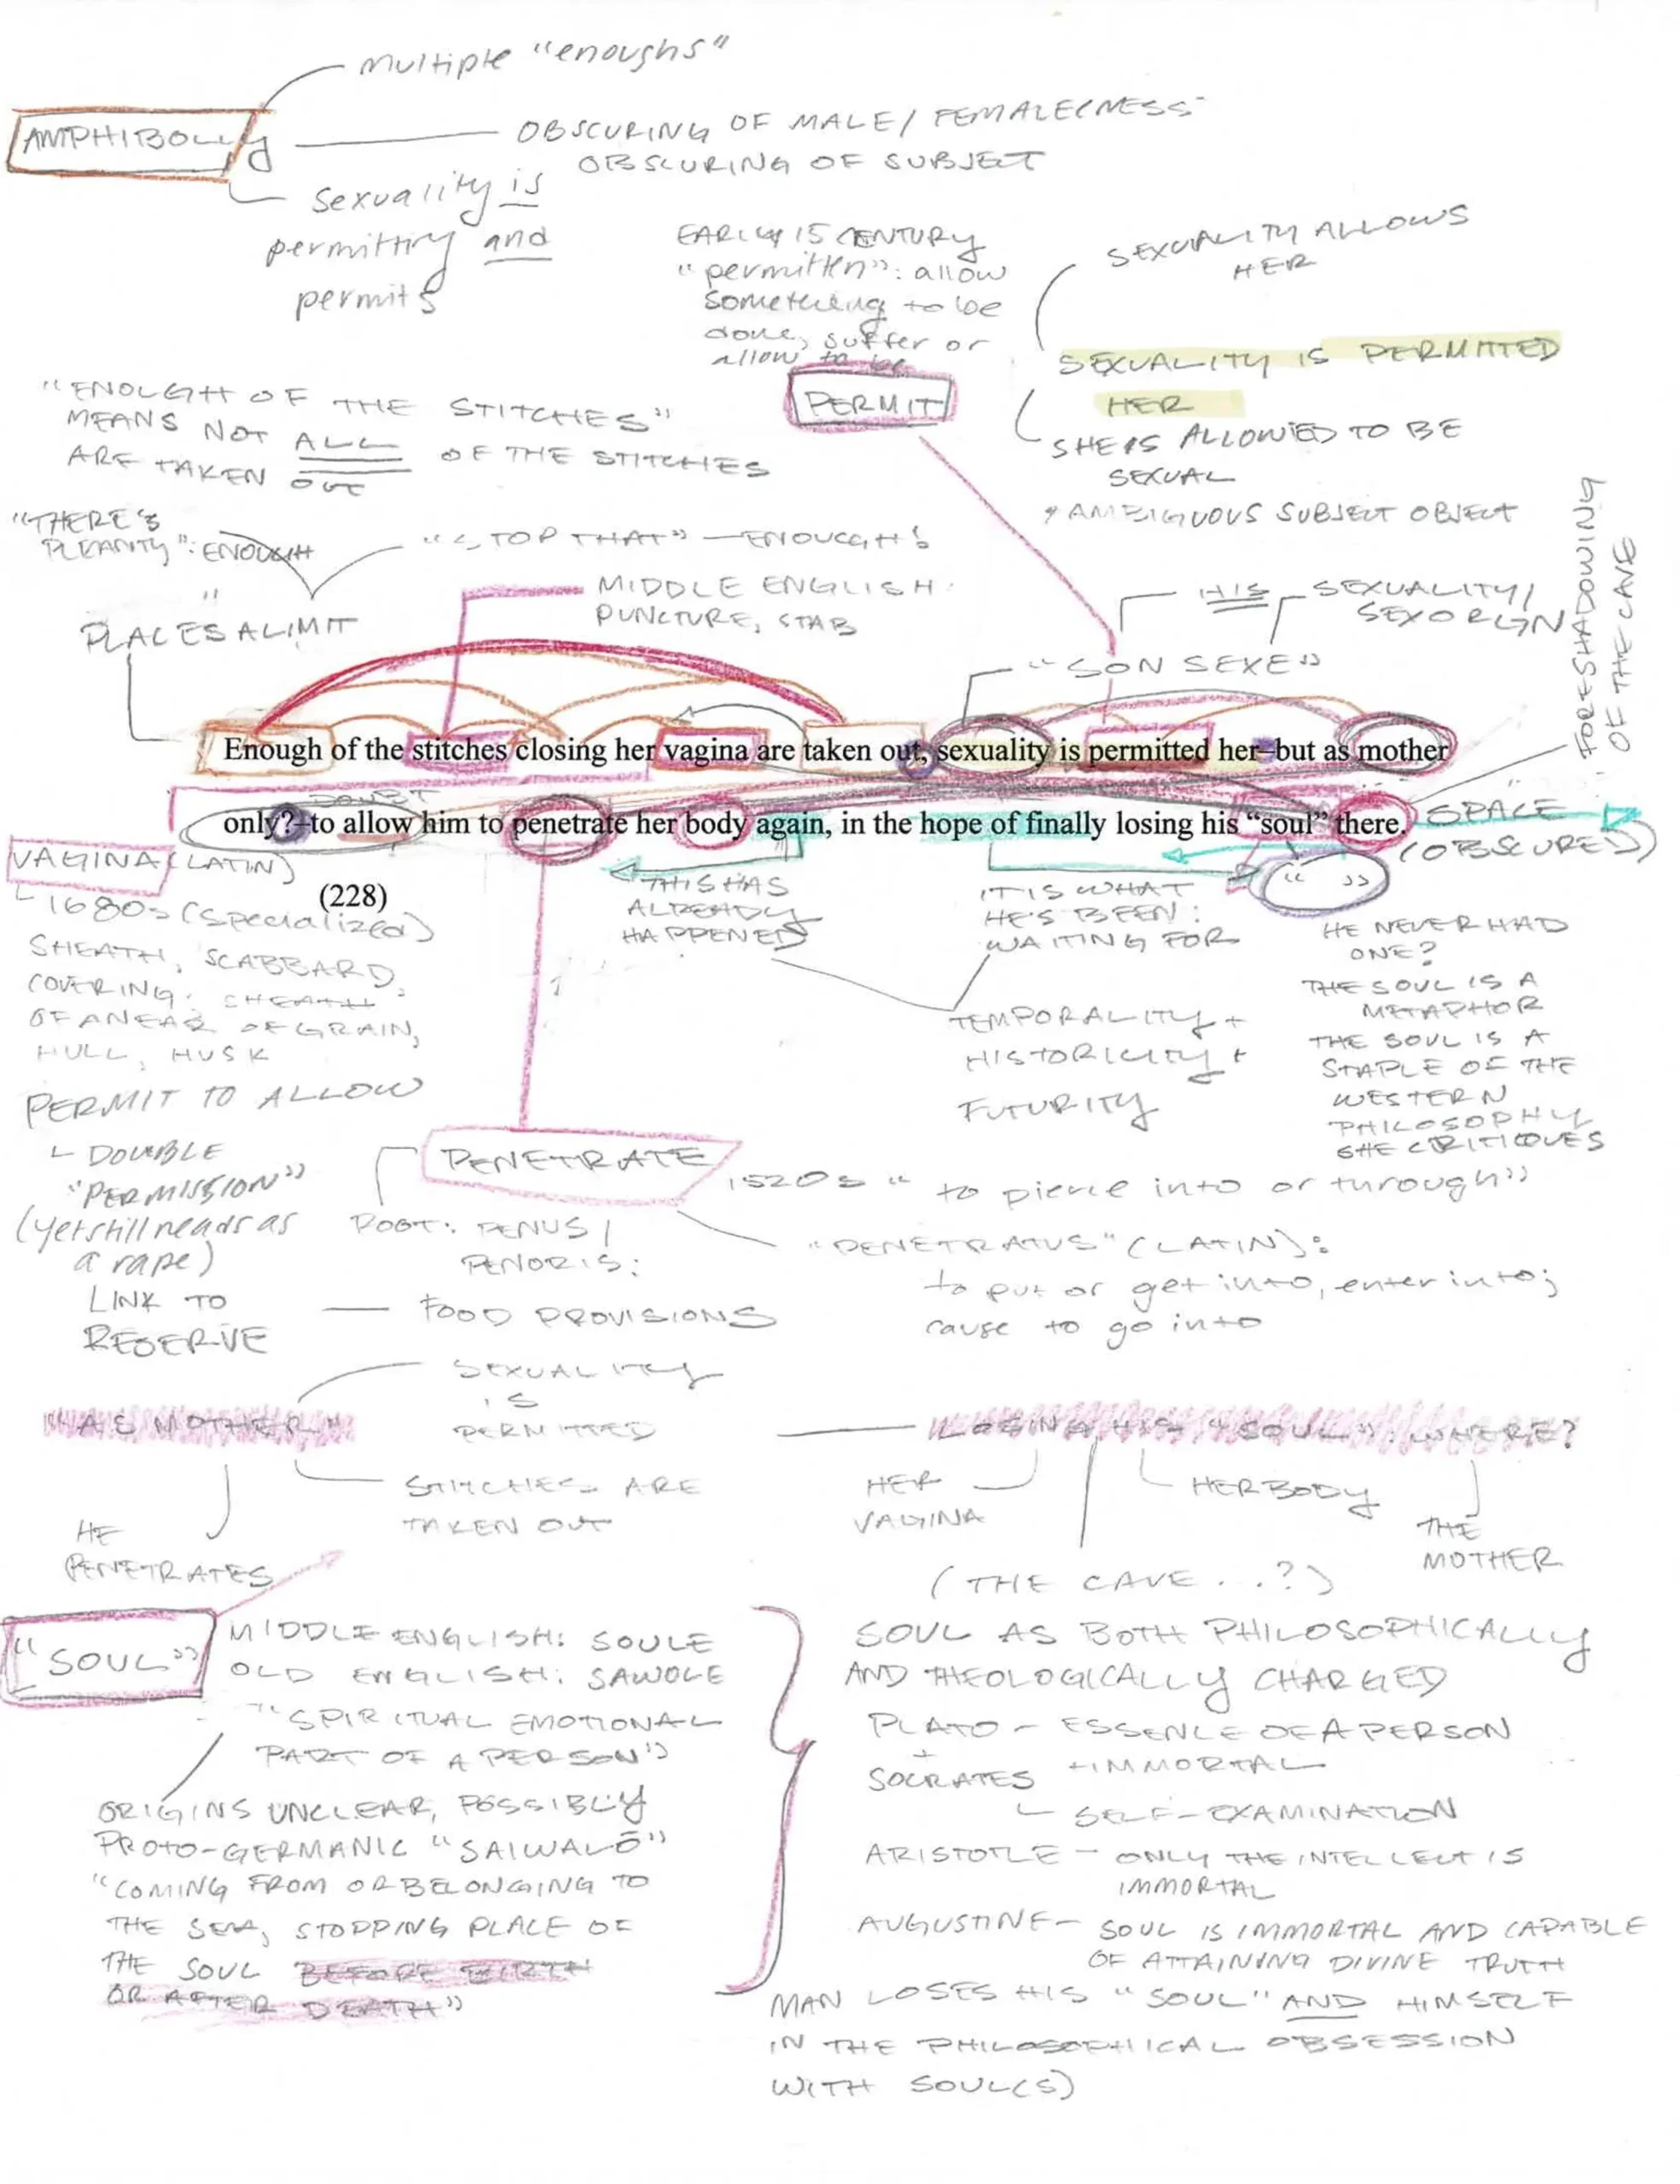 multiple "enoughs"
AMPHIBOLLY
OBSCURING OF MALE/FEMALE(NESS-
OBSCURING OF SUBJECT
sexuality is
permitting and
permits
EARLY 15 CENTURY
"permitten": allow
something to be
done, suffer or
allow to be
PERMIT
SEXUALITY ALLOWS
HER
SEXUALITY IS PERMITTED
HER
SHE IS ALLOWED TO BE
SEXUAL
* AMBIGUOUS SUBJECT OBJECT
"ENOUGH OF THE STITCHES"
MEANS NOT ALL OF THE STITCHES
ARE TAKEN OUT
"THERE'S
PLEANTY": ENOUGH
"STOP THAT" — ENOUGH!
PLACES A LIMIT
MIDDLE ENGLISH:
PUNCTURE, STAB
HIS
SEXUALITY/
SEX ORGN
"SON SEXE"
FORESHADOWING
OF THE CAVE
Enough of the stitches closing her vagina are taken out, sexuality is permitted her–but as mother
only?–to allow him to penetrate her body again, in the hope of finally losing his "soul" there.
(228)
SPACE
(OBSCURED)
" "
VAGINA (LATIN)
1680s (specialized)
SHEATH, SCABBARD,
COVERING; SHEATH
OF AN EAR OF GRAIN,
HULL, HUSK
THIS HAS
ALREADY
HAPPENED
IT IS WHAT
HE'S BEEN
WAITING FOR
TEMPORALITY +
HISTORICITY +
FUTURITY
HE NEVER HAD
ONE?
THE SOUL IS A
METAPHOR
THE SOUL IS A
STAPLE OF THE
WESTERN
PHILOSOPHY
SHE CRITIQUES
PERMIT TO ALLOW
DOUBLE
"PERMISSION"
(yet still reads as
a rape)
LINK TO
RESERVE
PENETRATE
1520s "to pierce into or through"
ROOT: PENUS/
PENORIS:
FOOD PROVISIONS
"PENETRATUS" (LATIN):
to put or get into, enter into;
cause to go into
"AS MOTHER"
SEXUALITY
IS
PERMITTED
STITCHES ARE
TAKEN OUT
HE
PENETRATES
LOSING HIS "SOUL": WHERE?
HER
VAGINA
HER BODY
THE
MOTHER
(THE CAVE...?)
"SOUL"
MIDDLE ENGLISH: SOULE
OLD ENGLISH: SAWOLE
"SPIRITUAL EMOTIONAL
PART OF A PERSON"
ORIGINS UNCLEAR, POSSIBLY
PROTO-GERMANIC "SAIWALŌ"
"COMING FROM OR BELONGING TO
THE SEA, STOPPING PLACE OF
THE SOUL BEFORE BIRTH
OR AFTER DEATH"
SOUL AS BOTH PHILOSOPHICALLY
AND THEOLOGICALLY CHARGED
PLATO - ESSENCE OF A PERSON
+
SOCRATES + IMMORTAL
SELF-EXAMINATION
ARISTOTLE - ONLY THE INTELLECT IS
IMMORTAL
AUGUSTINE - SOUL IS IMMORTAL AND CAPABLE
OF ATTAINING DIVINE TRUTH
MAN LOSES HIS "SOUL" AND HIMSELF
IN THE PHILOSOPHICAL OBSESSION
WITH SOUL(S)